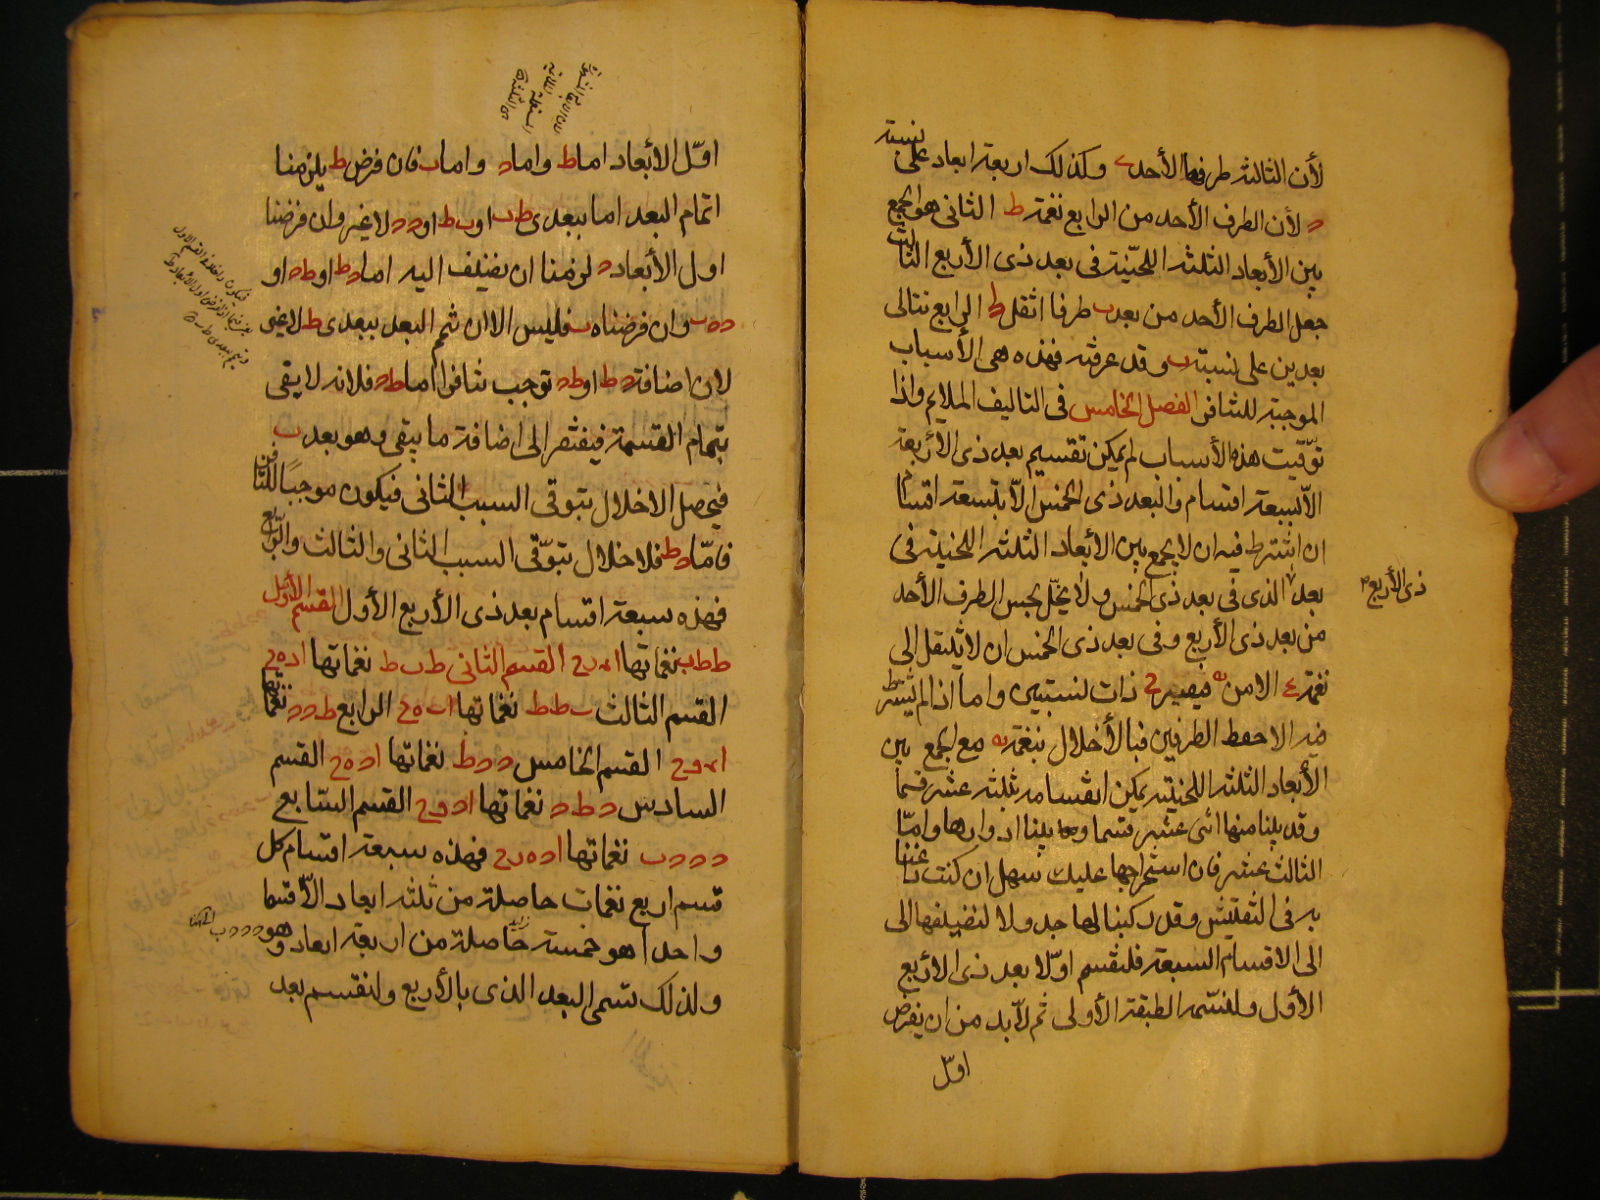 لأن الثالثة طرفها الأحد ى وكذلك اربعة ابعاد على نسبة
ه لأن الطرف الأحد من الرابع نغمة ط الثانى هو الجمع
بين الأبعاد الثلثة اللحنية فى بعد ذى الأربع الثالث
جعل الطرف الأحد من بعد ب طرفا اثقل ط الرابع تتالى
بعدين على نسبة ب وقد عرفته فهذه هى الأسباب
الموجبة للتنافر الفصل الخامس فى التاليف الملايم واذا
توقيت هذه الأسباب لم يمكن تقسيم بعد ذى الأربعة
الا بسبعة اقسام والبعد ذى الخمس الا بتسعة اقسام
ان اشترط فيه ان لا يجمع بين الأبعاد الثلثة اللحنية فى
بعد الذى فى بعد ذى الخمس ولا يخل بجس الطرف الأحد
ذى الأربع
من بعد ذى الأربع وفى بعد ذى الخمس ان لا ينتقل الى
نغمة الا من فيصير ح ذات نسبتين واما اذا لم يشترط
فيه الا حفظ الطرفين فبالأخلال بنغمة مع الجمع بين
الأبعاد الثلثة اللحنية يمكن انقسامه ثلثة عشر قسما
وقد بينا منها اثنى عشر قسما وبينا ادوارها واما
الثالث عشر فان استخراجها عليك سهل ان كنت
به فى التفتيش وقد ركبنا لها جدولا لنضيفها الى
الى الاقسام السبعة فلنقسم اولا بعد ذى الأربع
الأول ولنسمه الطبقة الأولى ثم لا بد من ان يفرض
اول
اول الأبعاد اما ط واما ه واما ب فان فرض ط يلزمنا
اتمام البعد اما ببعدى ط ب او ب ط او ه ه لا غير وان فرضنا
اول الأبعاد ه لزمنا ان يضيف اليه اما ه ط او ط ه او
ه ه ب وان فرضناه ب فليس الا ان تتم البعد ببعدى ط لا غير
لان اضافة ه ط او ط ه توجب تنافرا اما ط ه فلانه لا يفى
بتمام القسمة فيفتقر الى اضافة ما يبقى وهو بعد ب
فيحصل الاخلال بتوقى السبب الثانى فيكون موجبا للتنافر
فاما ه ط فلاخلال بتوقى السبب الثانى والثالث والرابع
فهذه سبعة اقسام بعد ذى الأربع الأول القسم الأول
ط ط ب نغماتها ا د ز ح القسم الثانى ط ب ط نغماتها ا د ه ح
القسم الثالث ب ط ط نغماتها ا ب ه ح الرابع ط ه ه نغماتها
ا د و ح القسم الخامس ه ه ط نغماتها ا ج ه ح القسم
السادس ه ط ه نغماتها ا ج و ح القسم السابع
ه ه ه ب نغماتها ا ج ه ز ح فهذه سبعة اقسام كل
قسم اربع نغمات حاصلة من ثلثة ابعاد الا قسما
واحدا هو خمسة حاصلة من اربعة ابعاد وهو ه ه ه ب
ولذلك سمى البعد الذى بالأربع ولنقسم بعد